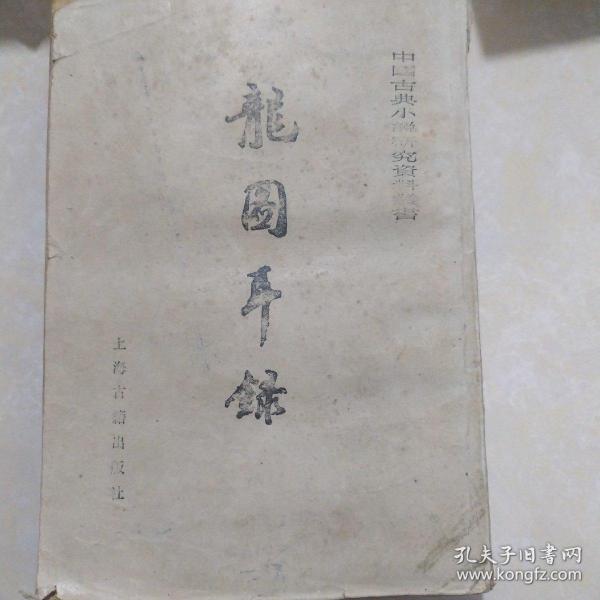 中國古典小說研究資料叢書
龍圖耳錄
上海古籍出版社
孔夫子旧書网
www.kongfz.com